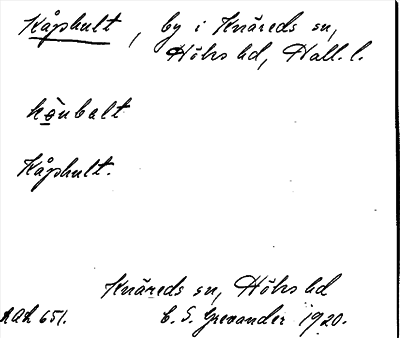 Kåphult, by i Knäreds sn,
Höks hd, Hall. l.
Kåphult.
Knäreds sn, Höks hd
651. C. S. Grevander 1920.